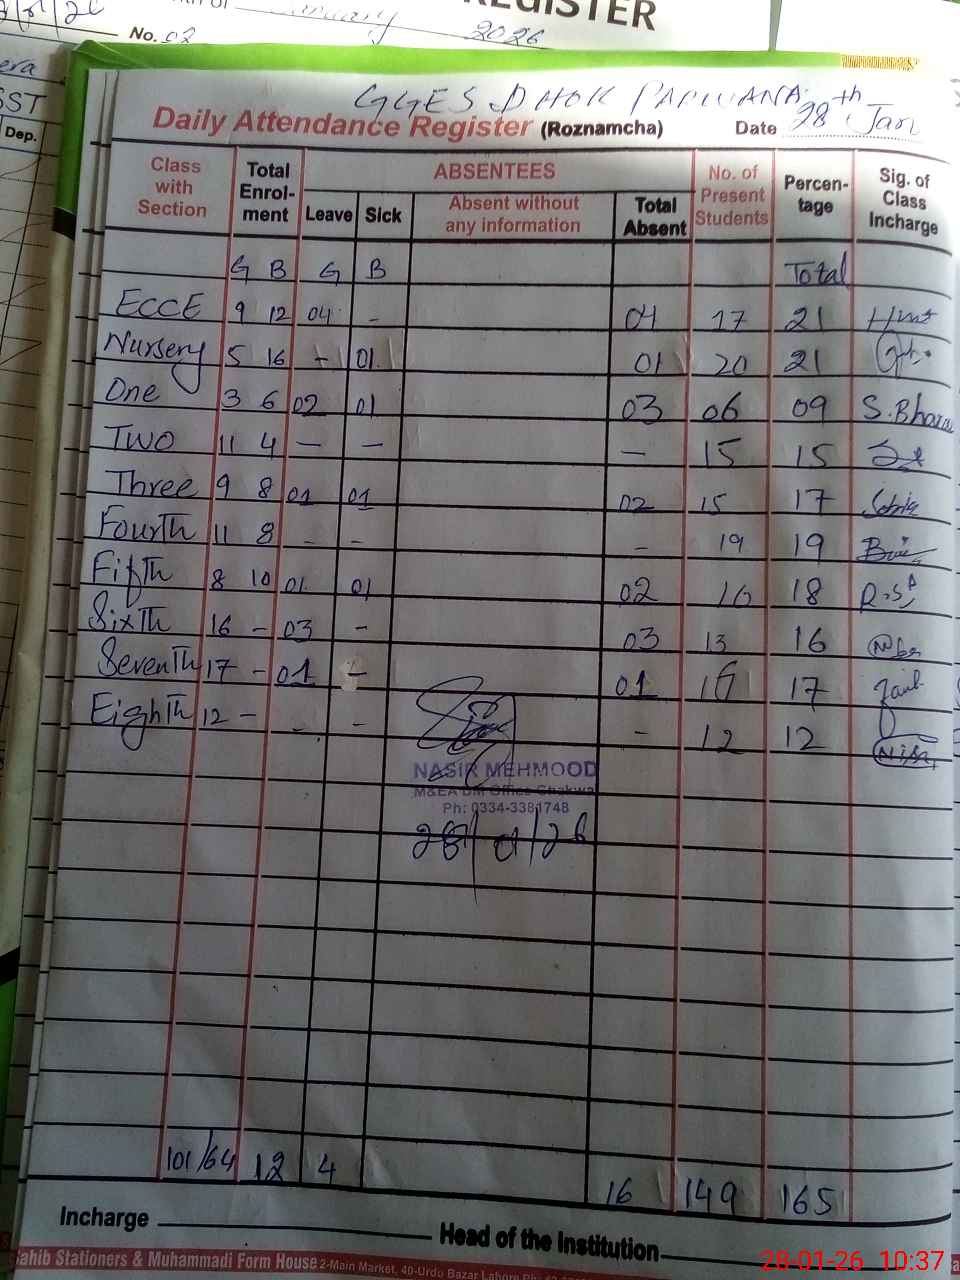 REGISTER
January 2026
No. 02
SST
Dep.
GGES DHOK PARWANA
Daily Attendance Register (Roznamcha) Date 28th Jan
Class with Section Total Enrol-ment ABSENTEES No. of Present Students Percen-tage Sig. of Class Incharge
Leave Sick Absent without any information Total Absent
G B G B Total
ECCE 9 12 04 - 04 17 21
Nursery 5 16 - 01 01 20 21
One 3 6 02 01 03 06 09 S.Bhara
TWO 11 4 - - - 15 15
Three 9 8 01 01 02 15 17
Fourth 11 8 - - - 19 19
Fifth 8 10 01 01 02 16 18
Sixth 16 - 03 - 03 13 16
Seventh 17 - 01 - 01 16 17
Eighth 12 - - - - 12 12
NASIR MEHMOOD
M&EA DM Office Chakwal
Ph: 0334-3381748
28/01/26
101/64 12 4 16 149 165
Incharge Head of the Institution
Sahib Stationers & Muhammadi Form House 2-Main Market, 40-Urdu Bazar Lahore
28-01-26 10:37